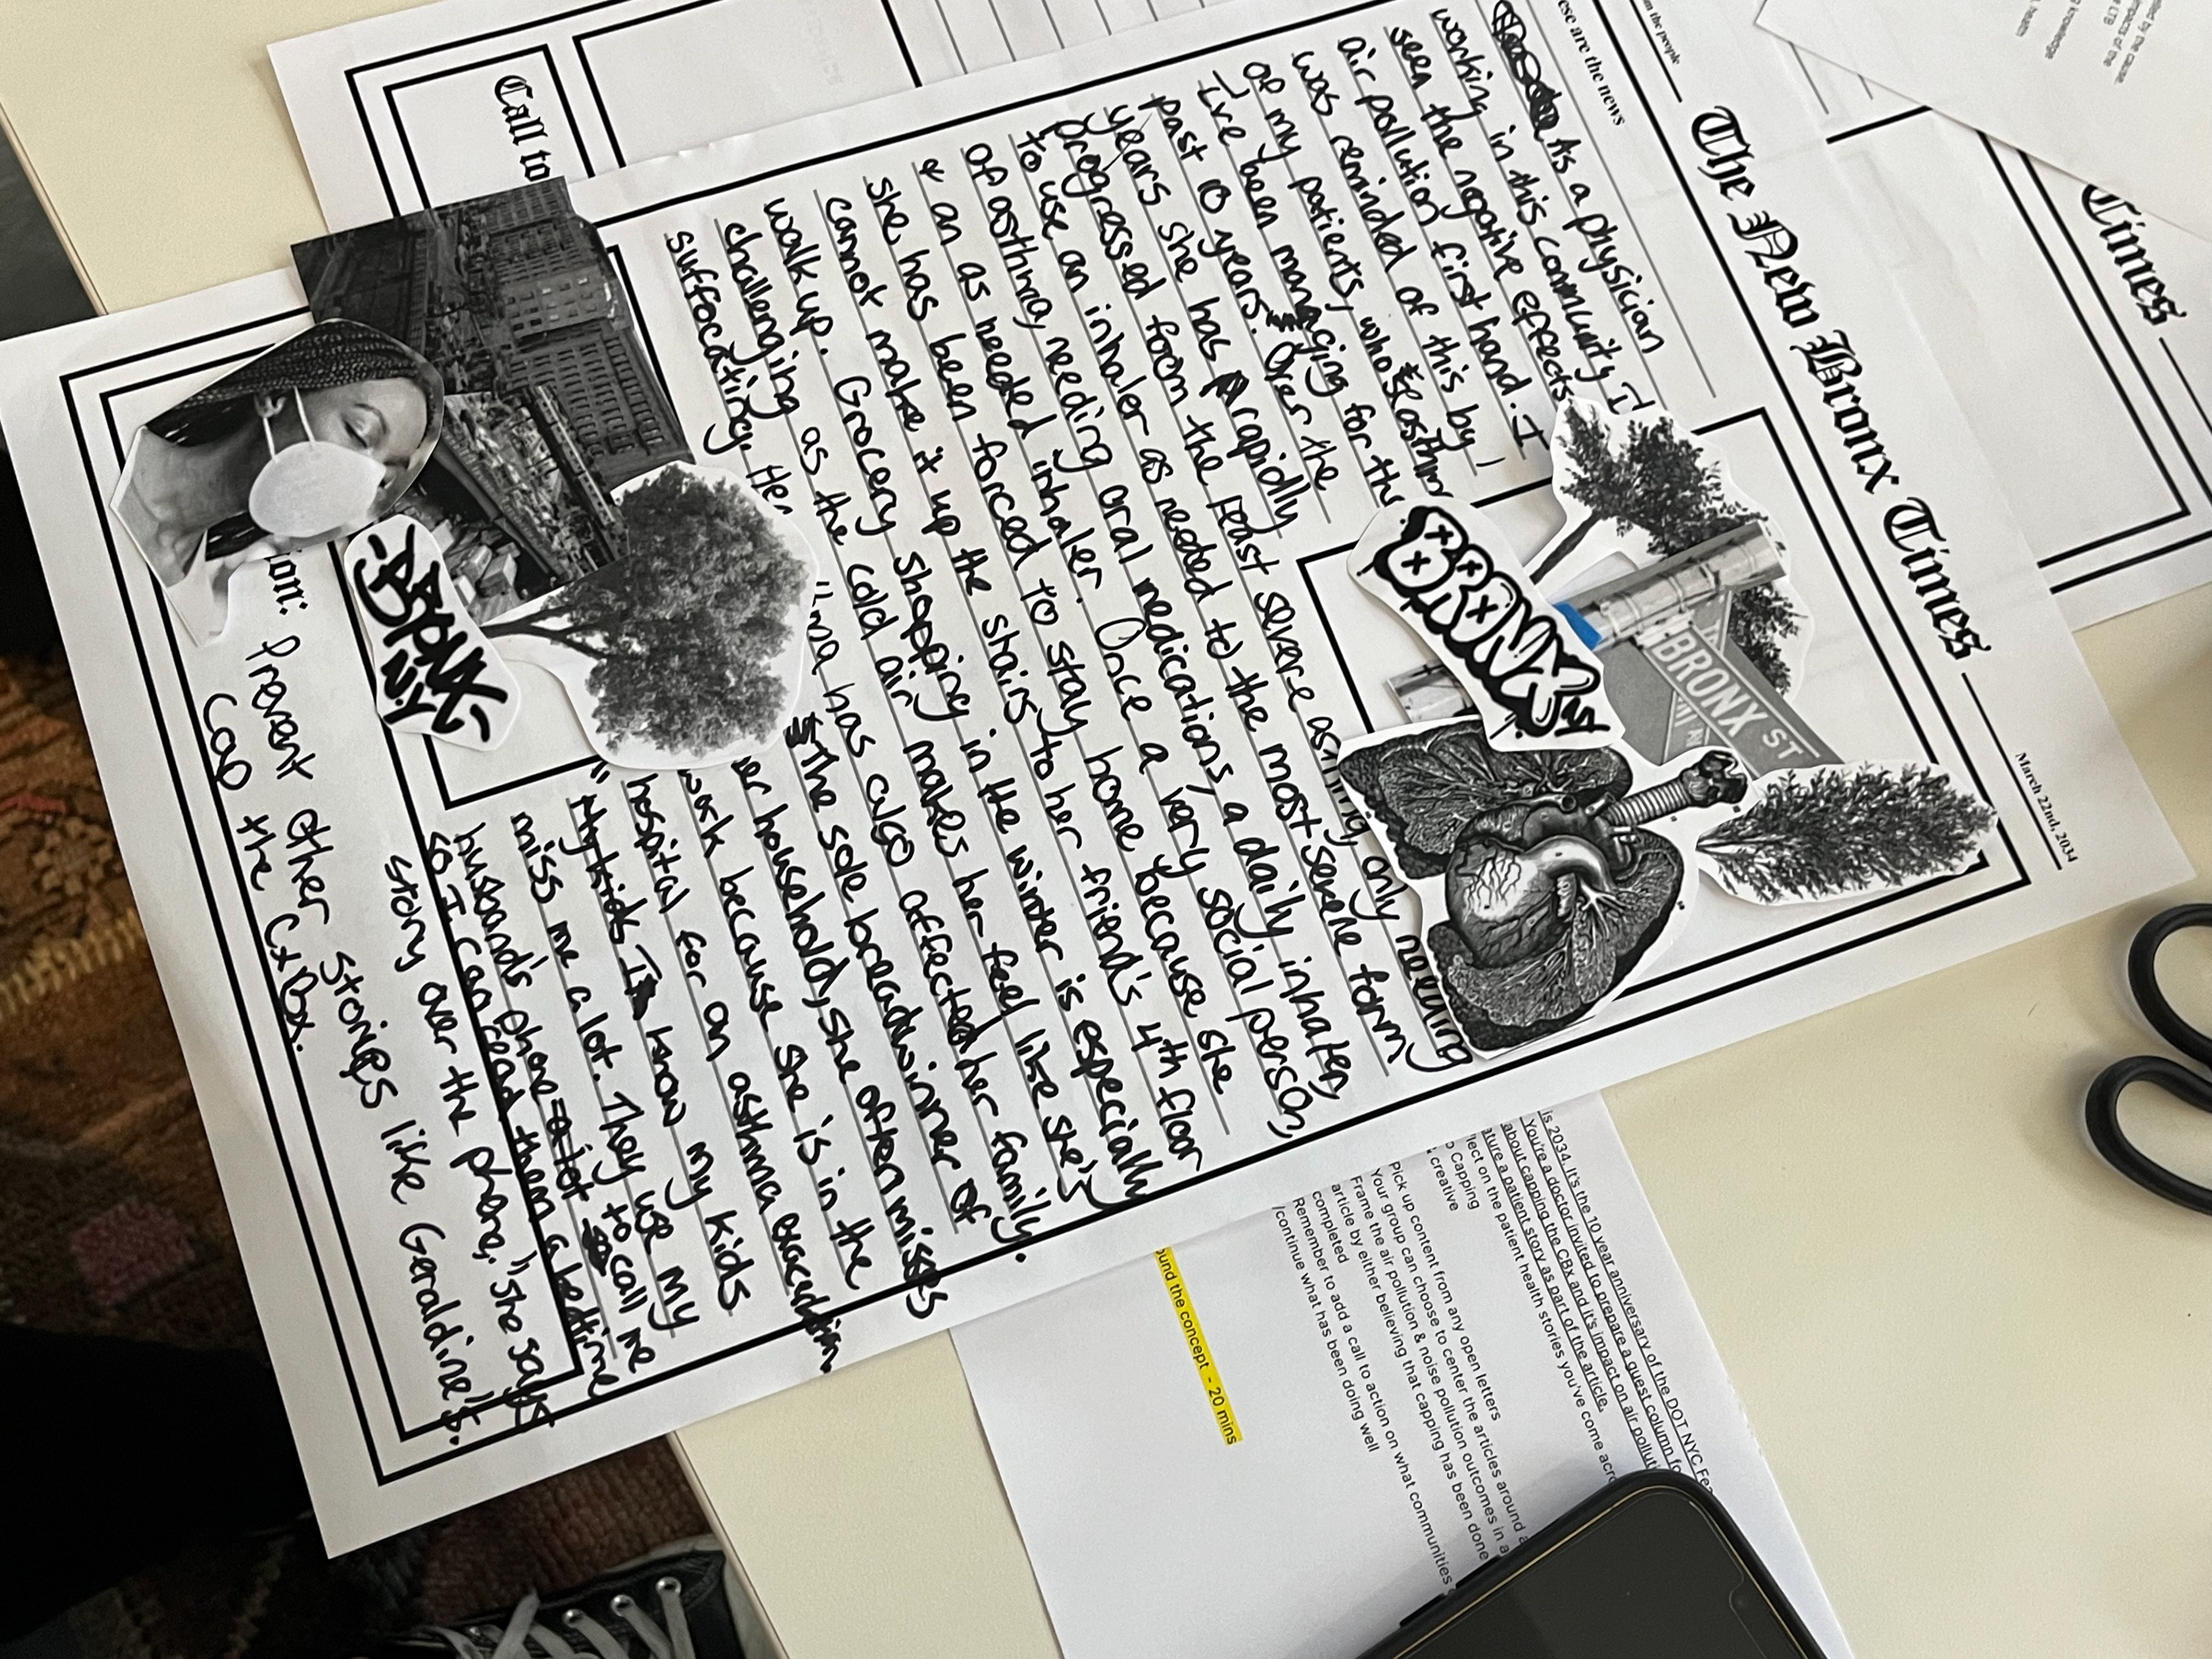 The New Bronx Times
March 22nd, 2034
ese are the news
m the people
As a physician
working in this community I
seen the negative effects
air pollution first hand. I
was reminded of this by 1
of my patients, whose
I've been managing for the
past 10 years. Over the
years she has rapidly
progressed from the least severe asthma, only needing
to use an inhaler as needed to the most severe form
of asthma, needing oral medications, a daily inhaler,
& an as needed inhaler. Once a very social person,
she has been forced to stay home because she
cannot make it up the stairs to her friend's 4th floor
walk up. Grocery shopping in the winter is especially
challenging as the cold air makes her feel like she's
suffocating. Her has also affected her family.
The sole breadwinner of
her household, she often misses
work because she is in the
hospital for an asthma
" I know my kids
miss me a lot. They use my
husband's phone to call me
so I can read them a bedtime
story over the phone," she says
ion: Prevent other stories like Geraldine's.
Cap the CxBx.
BRONX
NY
BRONX ST
BRONX
N.Y
Call to
Times
is 2034. It's the 10 year anniversary of the DOT NYC Fea
You're a doctor invited to prepare a guest column fo
about capping the CBx and it's impact on air polluti
ature a patient story as part of the article.
lect on the patient health stories you've come acro
o Capping
creative
Pick up content from any open letters
Your group can choose to center the articles around a
Frame the air pollution & noise pollution outcomes in a
article by either believing that capping has been done
completed
Remember to add a call to action on what communities
/continue what has been doing well
ound the concept - 20 mins